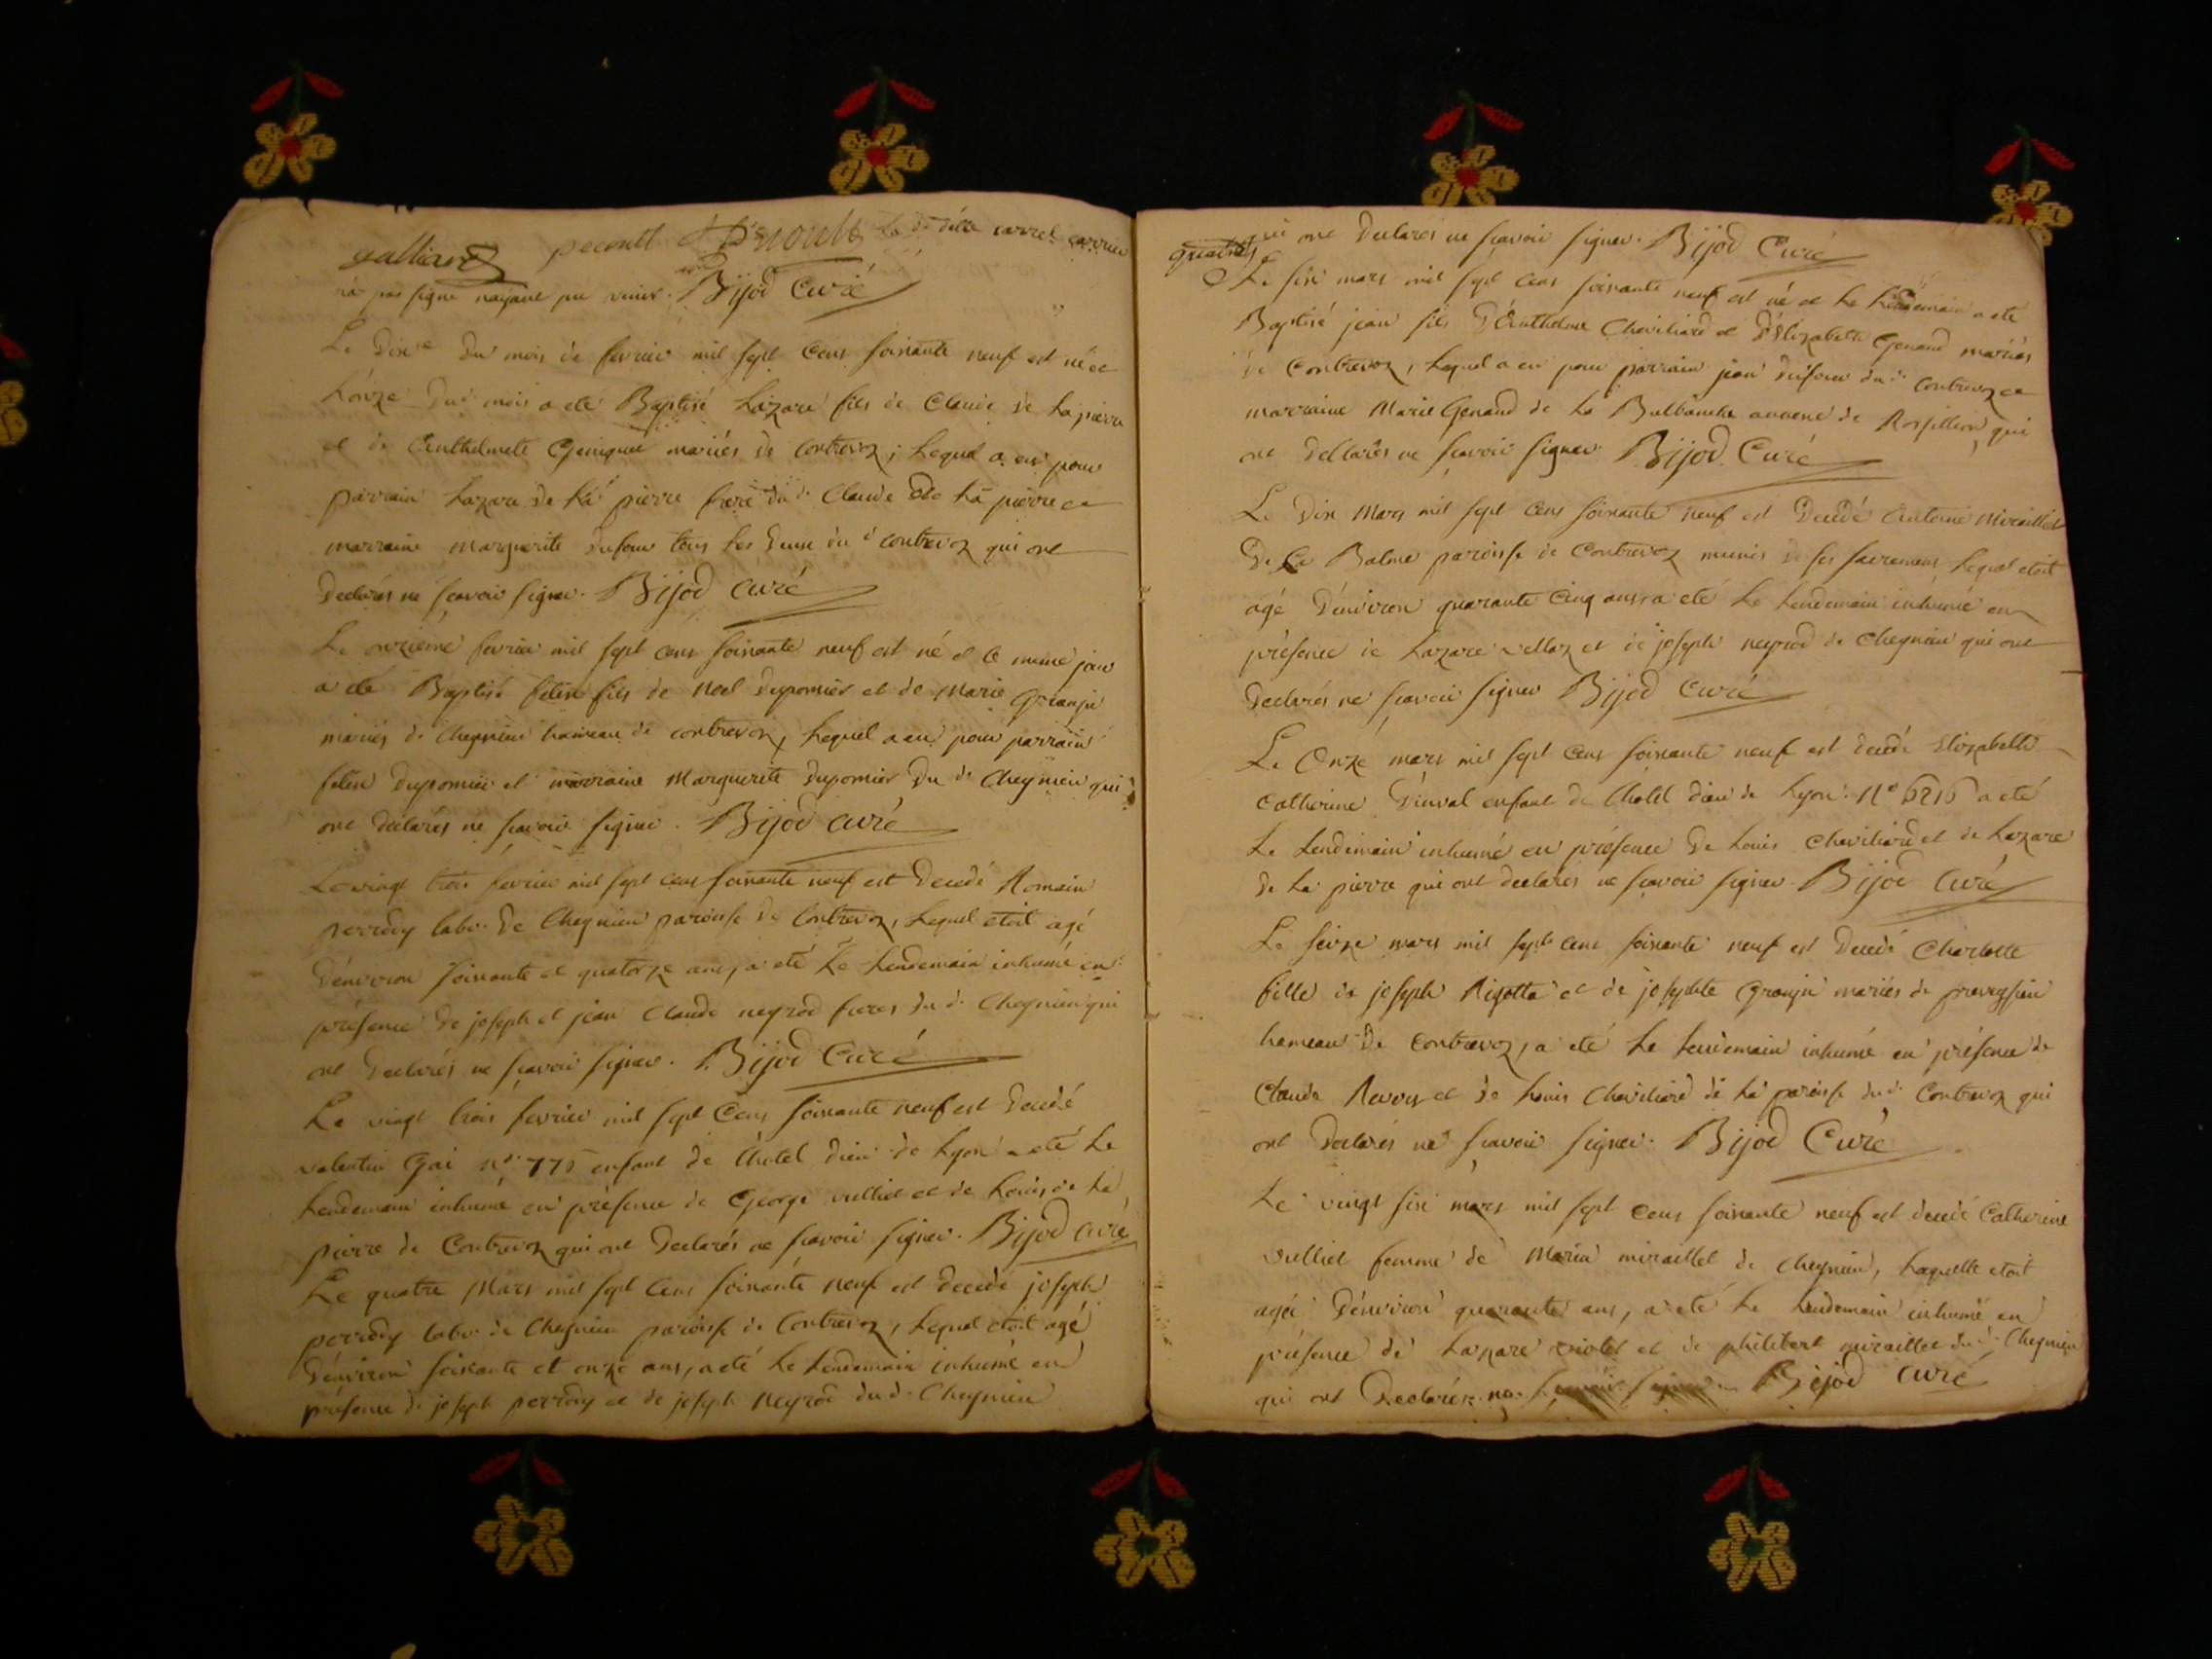 galliand pecoult Benoult
n'a pas signé nayant pu venir. Bijod Curé
Le dix.e du mois de fevrier mil sept cens soixante neuf est né et
L'onze dud. mois a eté Baptisé Lazare fils de Claude de La pierre
et de Anthelmete mariés de Contrevoz; Lequel a eu pour
parrain Lazare de La pierre frere dud. Claude de La pierre et
marraine marguerite dufour tous Les deux dud. Contrevoz qui ont
declarés ne scavoir signer. Bijod Curé
Le onzieme fevrier mil sept cens soixante neuf est né et le meme jour
a eté Baptisé felix fils de Noel dupomier et de Marie Granjé
mariés de Cheignieu hameau de contrevoz, Lequel a eu pour parrain
felix dupomier et marraine Marguerite dupomier du d. Cheignieu qui
ont declarés ne scavoir signer. Bijod Curé
Le vingt trois fevrier mil sept cens soixante neuf est Decedé Romain
perrody labr. de Cheignieu paroisse de Contrevoz, Lequel etoit agé
d'environ soixante et quatorze ans, a eté Le Lendemain inhumé en
présence de joseph et jean Claude neyrod freres dud. Cheignieu qui
ont Declarés ne scavoir signer. Bijod Curé
Le vingt trois fevrier mil sept Cens soixante neuf est Decedé
valentin Gai n.o 775 enfant de l'hotel dieu de Lyon a eté Le
Lendemain inhumé en présence de George vulliet et de Louis de La
pierre de Contrevoz qui ont Declarés ne scavoir signer. Bijod Curé
Le quatre Mars mil sept Cens soixante neuf est decedé joseph
perrody labr. de Cheignieu paroisse de Contrevoz, Lequel etoit agé
d'environ soixante et onze ans, a eté Le Lendemain inhumé en
présence de joseph perrody et de joseph Neyrod dud. Cheignieu
qui ont declarés ne scavoir signer. Bijod Curé
Le six mars mil sept cens soixante neuf est né et Le Lendemain a eté
Baptisé jean fils d'Anthelme Chaviliard et d'Elizabeth Genaud mariés
de Contrevoz, Lequel a eu pour parrain jean dufour dud. Contrevoz et
marraine Marie Genaud de La de Rossillion, qui
ont dellarés ne scavoir signer Bijod Curé
Le Dix Mars mil sept Cens soixante neuf est Decedé Antoine miraillet
De La Balme paroisse de Contrevoz munis de ses sacremens Lequel etoit
agé d'environ quarante Cinq ans, a eté Le Lendemain inhumé en
présence de Lazare vellaz et de joseph neyrod de Cheignieu qui ont
Declarés ne scavoir signer Bijod Curé
Le Onze mars mil sept Cens soixante neuf est decedé Elizabette
Catherine enfant de l'hotel dieu de Lyon N.o a eté
Le Lendemain inhumé en présence de Louis Chaviliard et de Lazare
de La pierre qui ont declarés ne scavoir signer. Bijod Curé
Le seize mars mil sept cens soixante neuf est Decedé Charlotte
fille de joseph Rigotta et de josephte Granjé mariés de
hameau de Contrevoz, a eté Le Lendemain inhumé en présence de
Claude Ravoy et de Louis Chaviliard de La paroisse dud. Contrevoz qui
ont declarés ne scavoir signer. Bijod Curé
Le vingt six mars mil sept cens soixante neuf est decedé Catherine
vulliet femme de Marin miraillet de cheignieu, Laquelle etoit
agée d'environ quarante ans, a eté Le Lendemain inhumé en
présence de Lazare violet et de philibert miraillet dud. Cheignieu
qui ont Declarés ne scavoir signer Bijod Curé